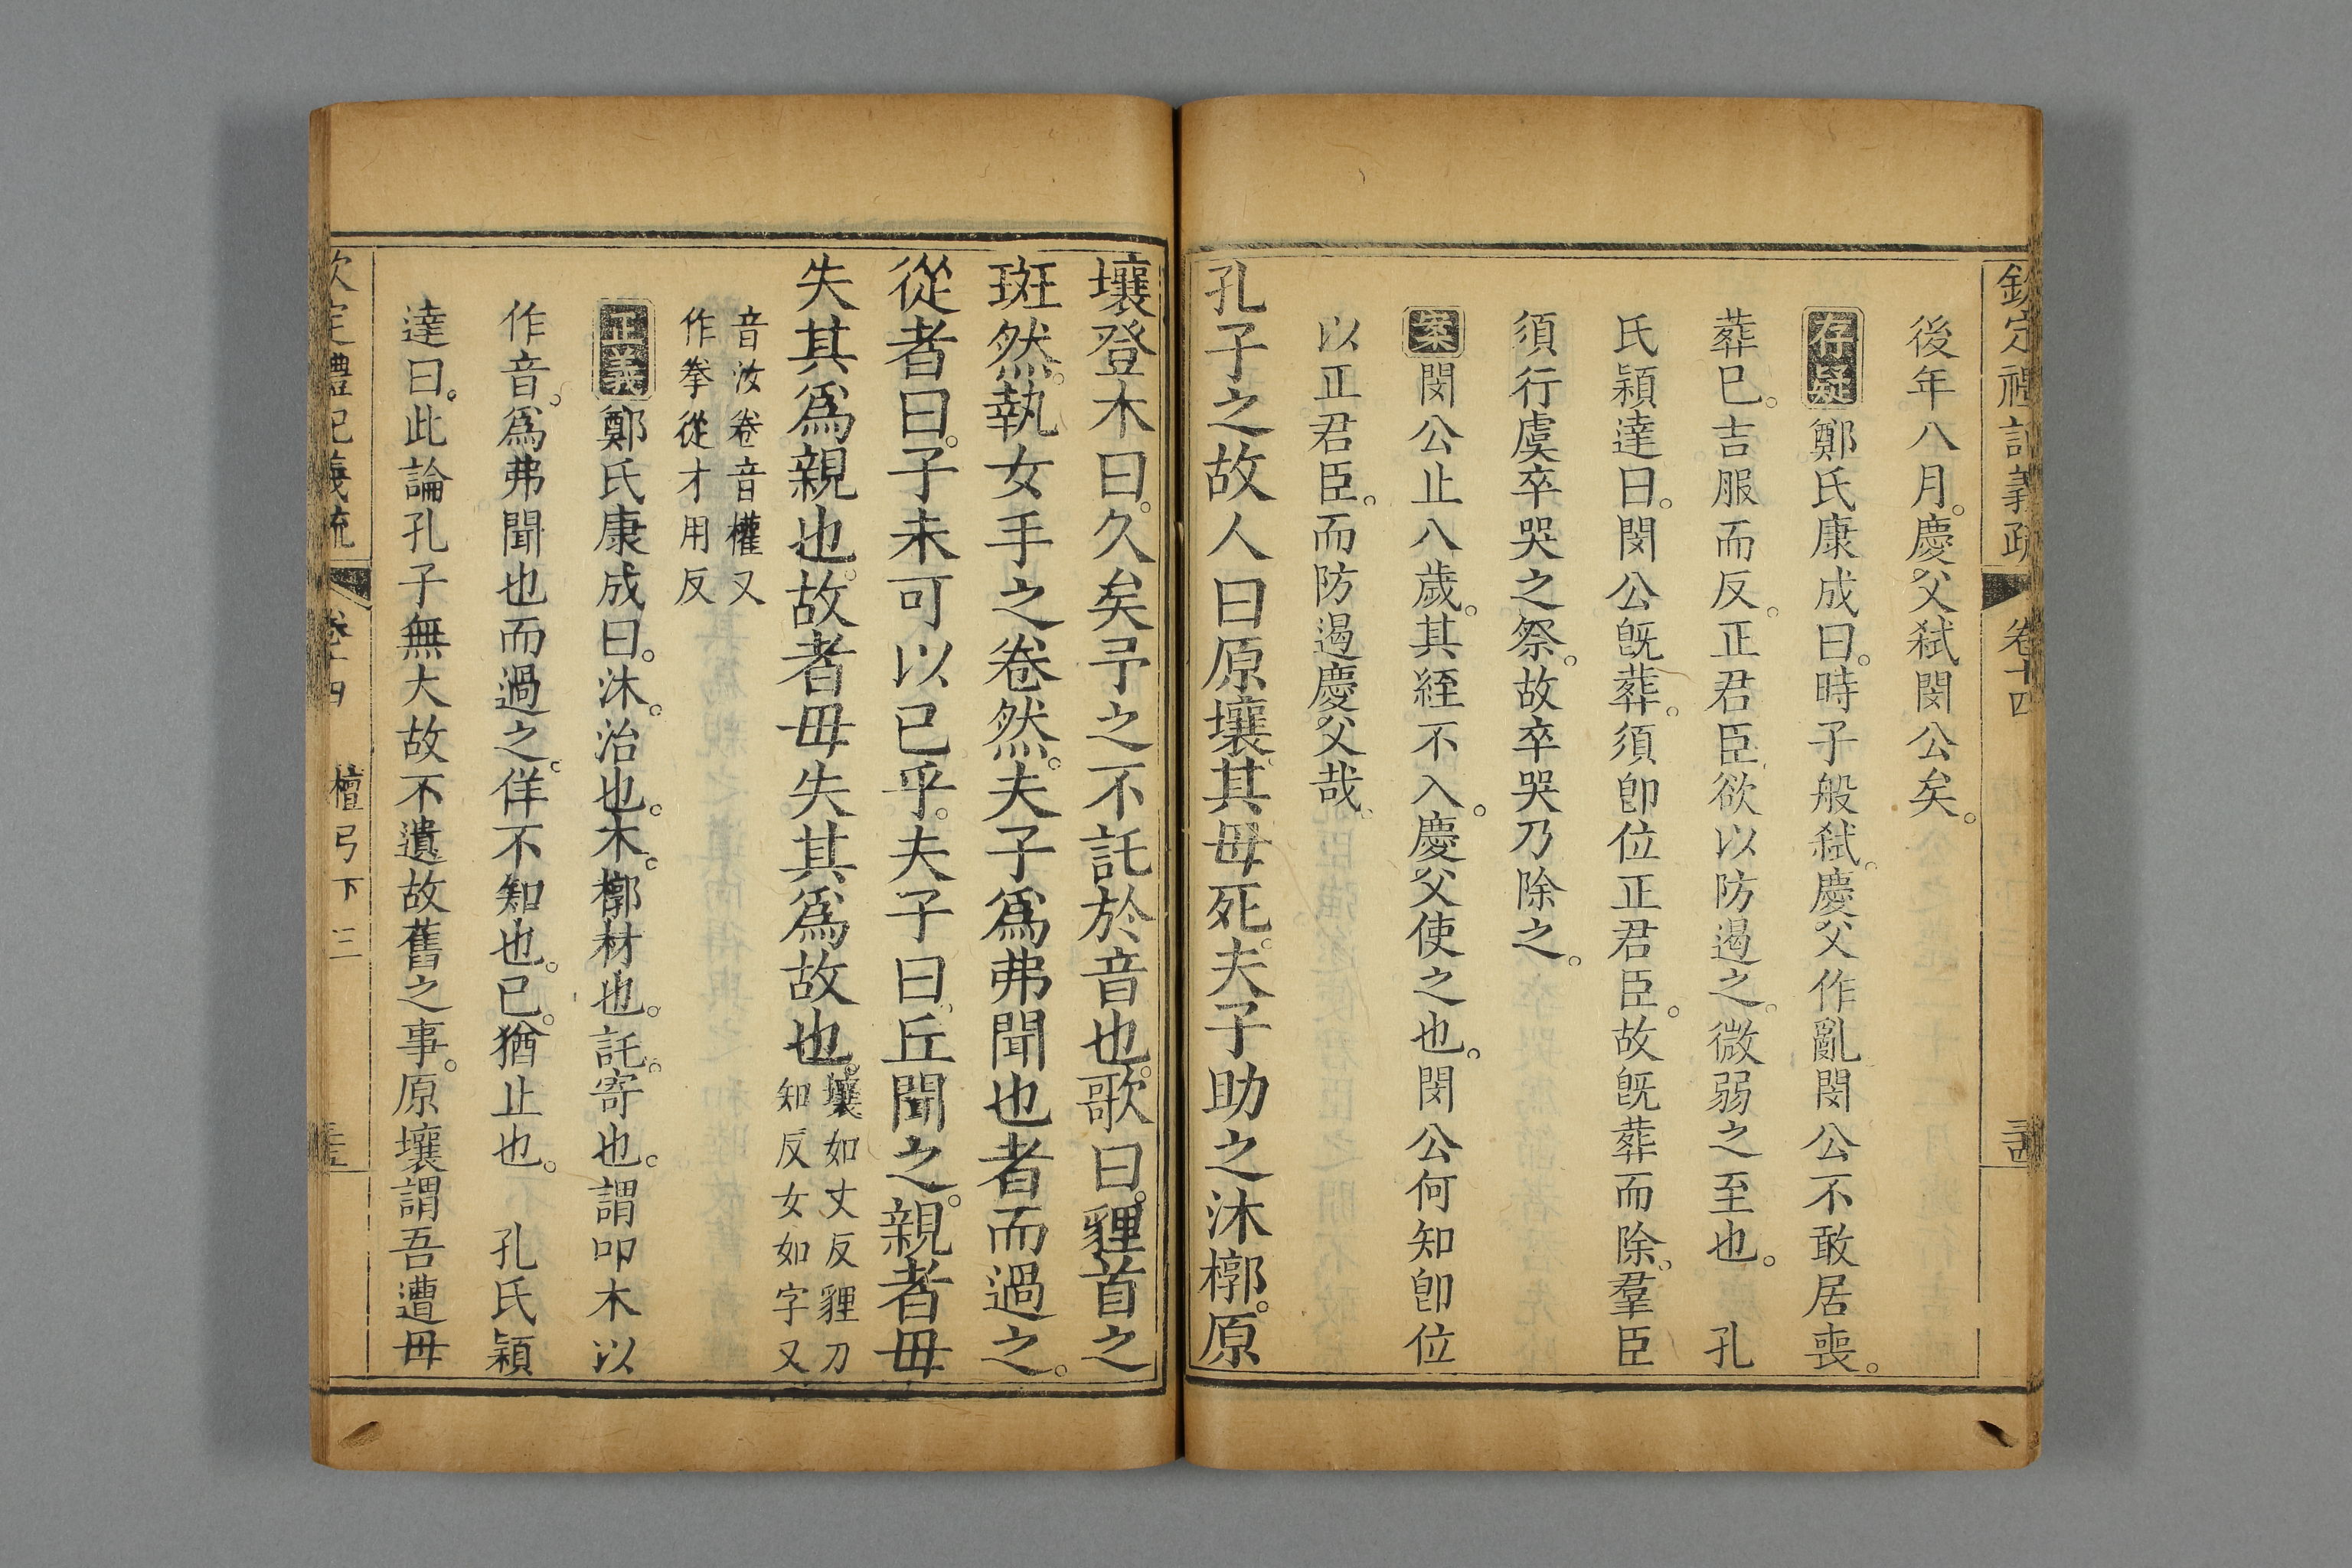 欽定禮記義疏 卷十四
後年八月。慶父弑閔公矣。
存疑 鄭氏康成曰。時子般弑。慶父作亂閔公不敢居喪。
葬已。吉服而反。正君臣。欲以防遏之。微弱之至也。 孔
氏穎達曰。閔公旣葬。須卽位正君臣。故旣葬而除。羣臣
須行虞卒哭之祭。故卒哭乃除之。
案 閔公止八歲。其絰不入。慶父使之也。閔公何知卽位
以正君臣。而防遏慶父哉。
孔子之故人曰原壤。其毋死。夫子助之沐槨。原
壤登木曰。久矣予之不託於音也。歌曰。貍首之
斑然。執女手之卷然。夫子爲弗聞也者而過之。
從者曰。子未可以已乎。夫子曰。丘聞之。親者毋
失其爲親也。故者毋失其爲故也。壤如丈反貍刀
知反女如字又
音汝卷音權又
作拳從才用反
正義 鄭氏康成曰。沐。治也。木。槨材也。託。寄也。謂叩木以
作音。爲弗聞也而過之。佯不知也。已。猶止也。 孔氏穎
達曰。此論孔子無大故不遺故舊之事。原壤謂吾遭毋
欽定禮記義疏 卷十四 檀弓下三